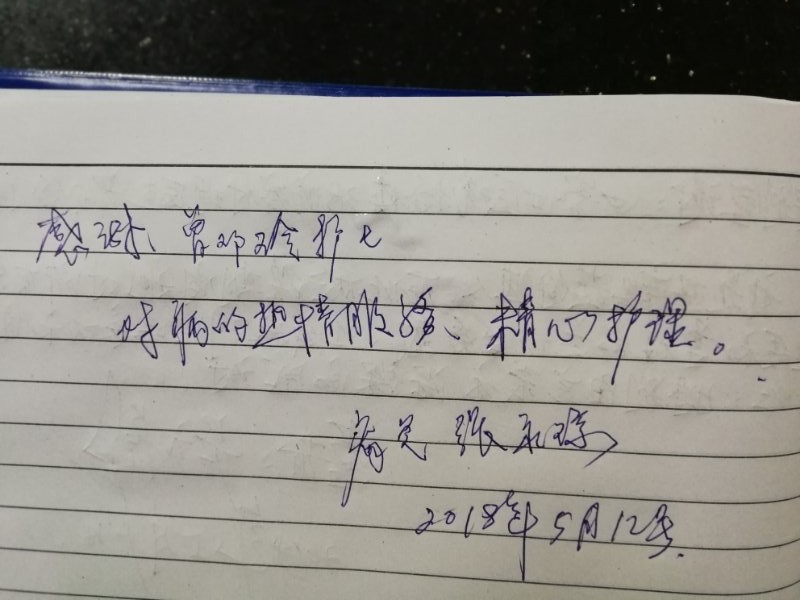 感谢、曾邓玲护士
对病的热情服务、精心护理。
病员 张永
2018年5月12号.